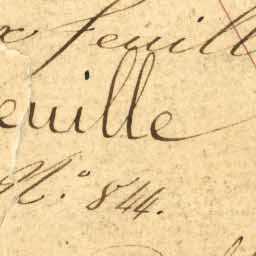 x feuill
euille
N.o 844.